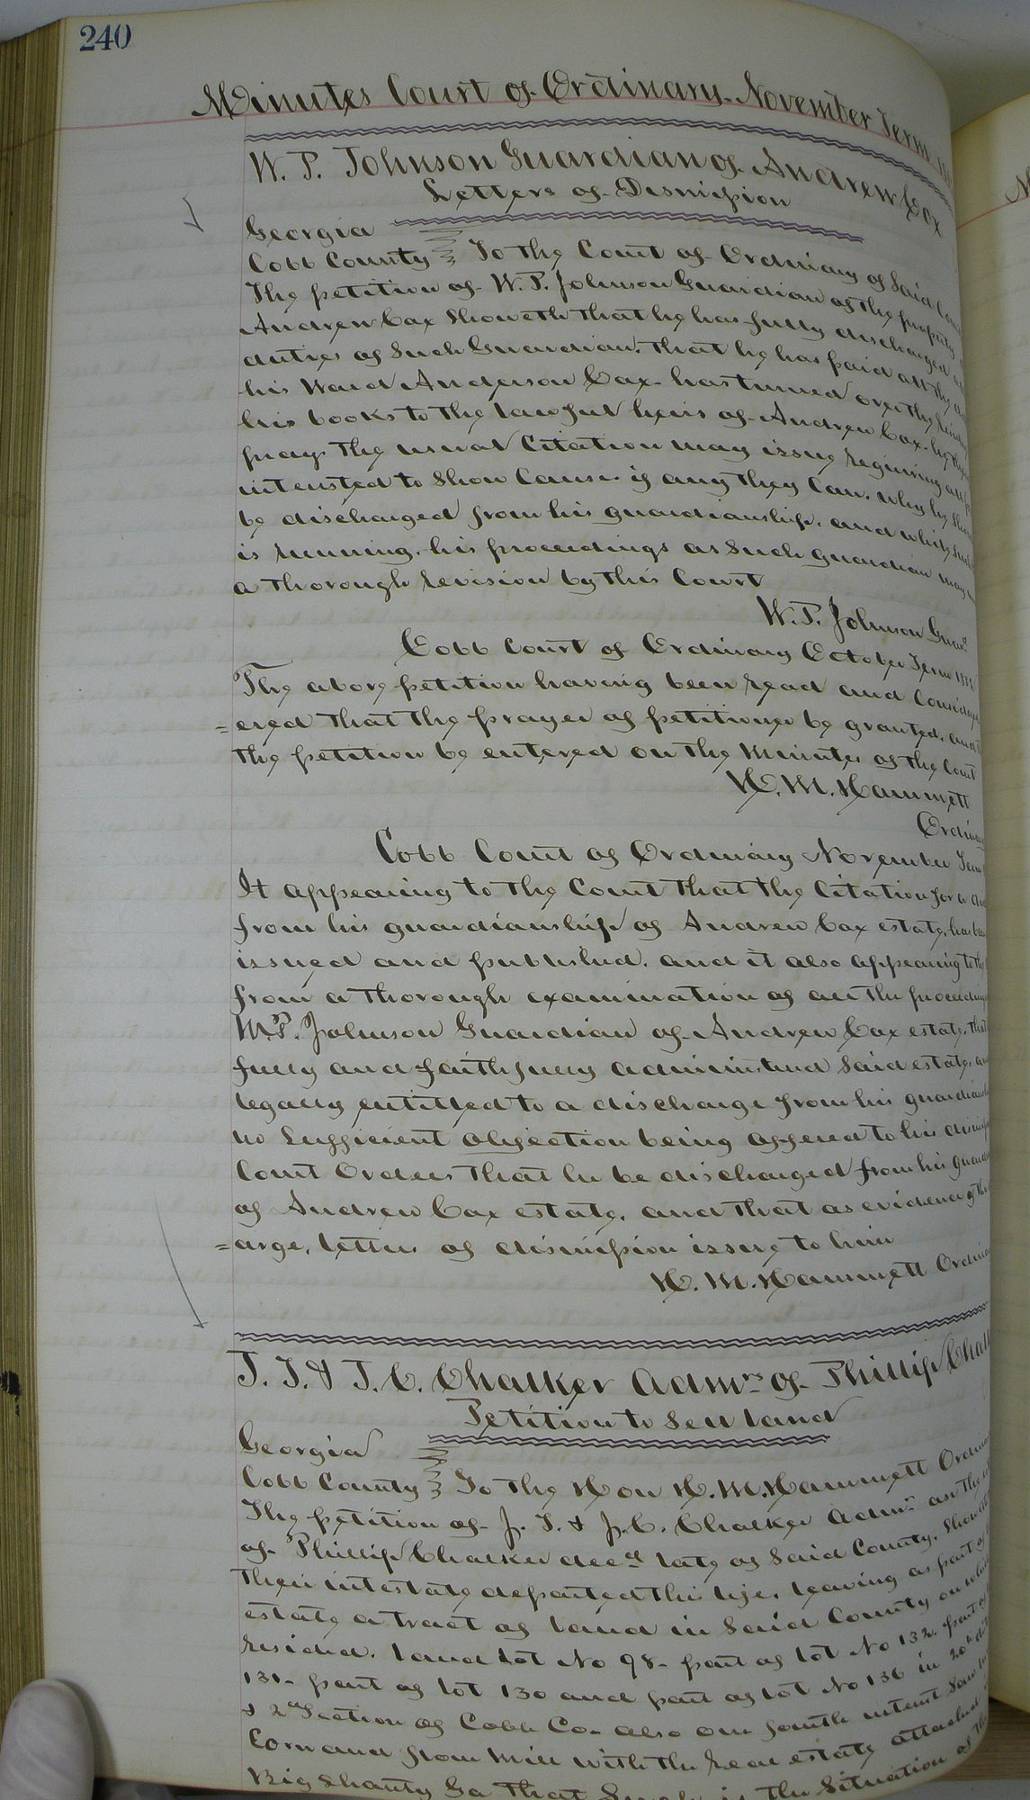 240
Minutes Court of Ordinary. November Term
W. P. Johnson Guardian of Andrew Cox
Letters of Dismission
Georgia
Cobb County To the Court of Ordinary of Said
The petition of W. P. Johnson Guardian of the property
Andrew Cox Showeth that he has fully discharged
duties of Such Guardian. that he has paid all the
his Ward Anderson Cox has turned over the
his books to the lawful heirs of Andrew Cox. he
pray the usual Citation may issue requiring all
intersted to Show Cause if any they Can. why he
be discharged from his guardianship. and while
is running. his proceedings as Such guardian may
a thorough revision by this Court
W. P. Johnson Guar
Cobb Court of Ordinary October Term
The above petition having been read and Consid
=ered that the prayer of petitioner be granted. and
the petition be entered on the Minutes of the Court
H. M. Hammett
Ordin
Cobb Court of Ordinary November Term
It appearing to the Court that the Citation for a
from his guardianship of Andrew Cox estate, has
issued and published. and it also appearing to the
from a thorough examination of all the proceedings
W. P. Johnson Guardian of Andrew Cox estate, that
fully and faithfully administered Said estate,
legally entitled to a discharge from his guardian
no Sufficient objection being offered to his dismis
Court Orders that he be discharged from his guard
of Andrew Cox estate. and that as evidence of
=arge, letters of dismission issue to him
H. M. Hammett Ordin
J. T. & J. C. Chalker Admrs of Phillip Chal
Petition to Sell land
Georgia
Cobb County To the Hon H. M. Hammett Ordin
The petition of J. T. & J. C. Chalker Admr on the
of Phillip Chalker decd late of Said County. Show
their intestate departed this life, leaving as part of
estate a tract of land in Said County on which
resided. land lot No 98- part of lot No 132. part of
131- part of lot 130 and part of lot No 136 in 20th
& 2nd Section of Cobb Co- also one fourth intrest
Corn and flour Mill with the real estate attached
Big Shanty Ga That Such is the Situation of